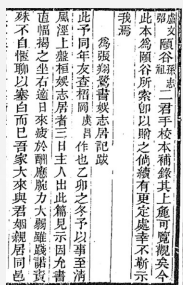 盧文弨頤谷孫志祖二君手校本補錄其上庶可覽觀矣今
此本爲頤谷所索卽以贈之倘續有更定處幸不斳示
我焉
爲張翔鶩書娛志居記跋
此予同年友查招岡虞昌作也乙卯之冬予以事至清
風涇上盤桓娛志居者三日主人出此篇見示因允書
直幅揭之坐右邇日來疲於酬應腕力大羸雖踐諾責
殊不自愜聊以塞白而已吾家大來與君姻親居同邑